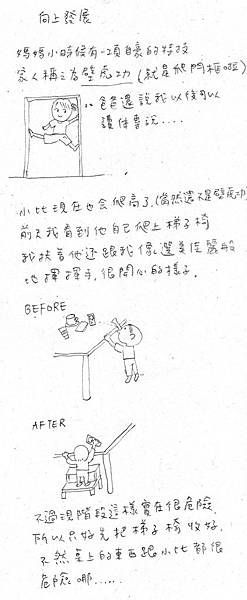 向上發展
媽媽小時候有一項自豪的特技
家人稱之為壁虎功(就是爬門框啦)
爸爸還說我以後可以
讀体專說....
小比現在也會爬高了,(當然還不是壁虎功)
前天我看到他自己爬上梯子椅
我扶著他还跟我像選美佳麗般
地揮揮手,很開心的樣子.
BEFORE
AFTER
不過現階段這樣實在很危險
所以只好先把梯子椅收好.
不然桌上的東西跟小比都很
危險哪......